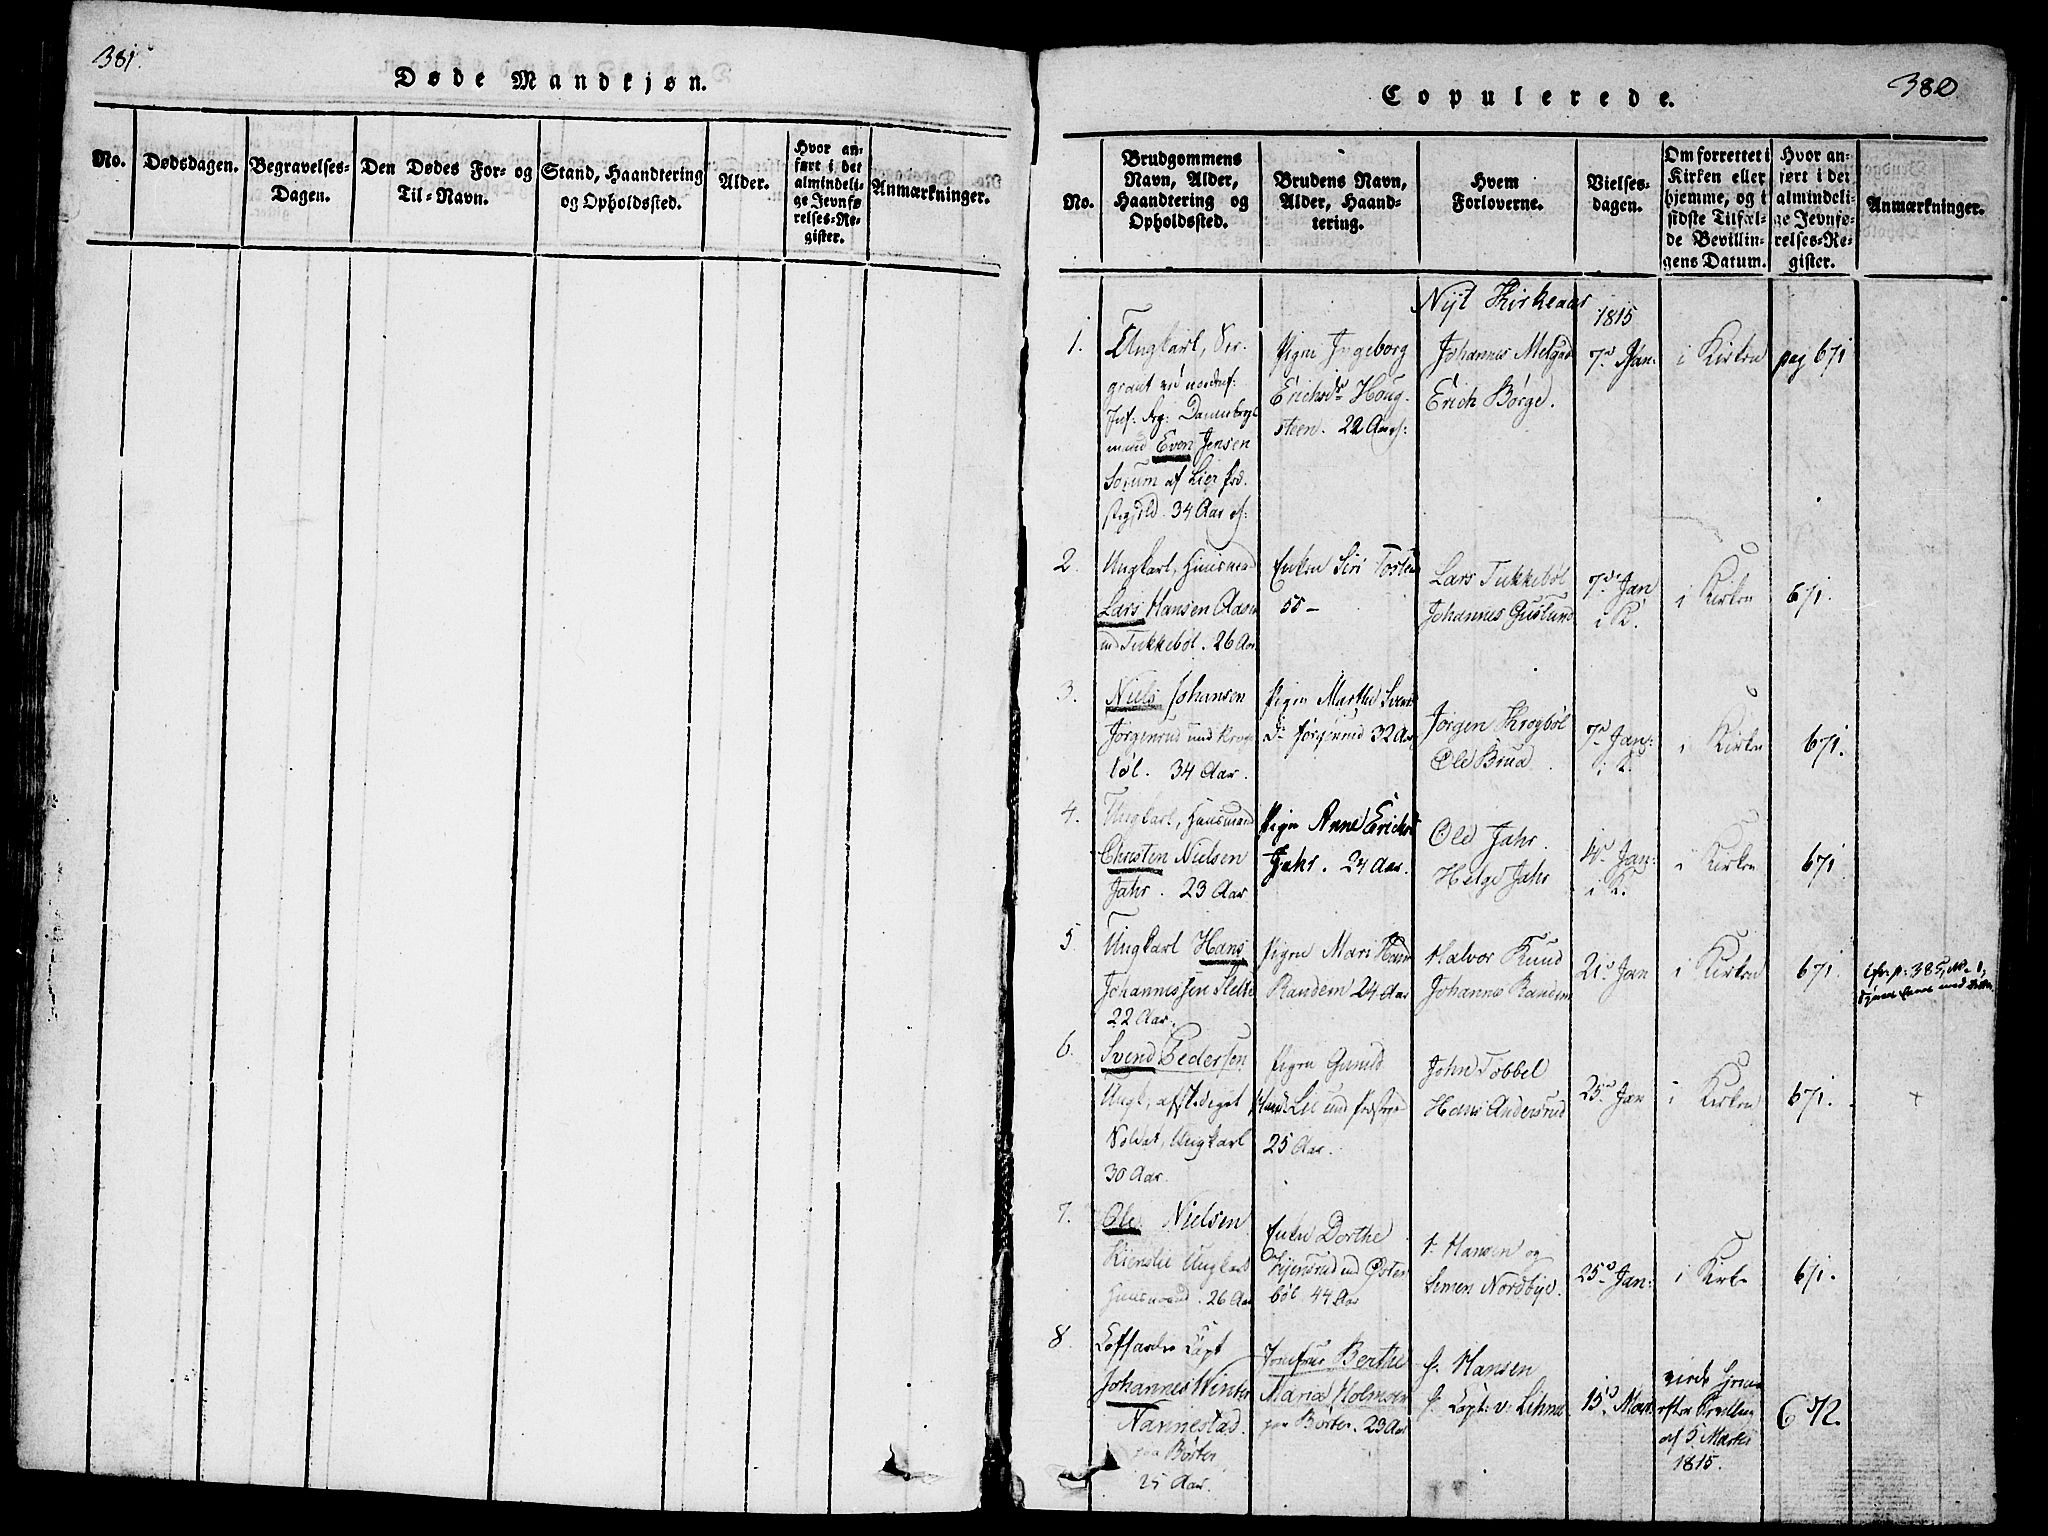 381.
Døde Mandkjøn.
No.
Dødsdagen.
Begravelses-
Dagen.
Den Dødes For- og
Til-Navn.
Stand, Haandtering
og Opholdssted.
Alder.
Hvor an-
ført i det
almindeli-
ge Jevnfø-
relses-Re-
gister.
Anmærkninger.
380
Copulerede.
No.
Brudgommens
Navn, Alder,
Haandtering og
Opholdssted.
Brudens Navn,
Alder, Haand-
tering.
Hvem
Forloverne.
Vielses-
dagen.
Om forrettet i
Kirken eller
hjemme, og i
sidste Tilfæl-
de Bevillin-
gens Datum.
Hvor an-
ført i det
almindeli-
ge Jevnfø-
relses-Re-
gister.
Anmærkninger.
Nyt Kirkeaar 1815
1.
Ungkarl, Ser-
geant ved nordenf:
Inf: Reg: Dannebrogs
mand Even Jensen
Sørum af Lier
34 Aar
Pigen Ingeborg
Erichsdr Houg-
steen. 22 Aar
Johannes Melgaard
Erich Børge.
7de Jan:
i Kirken
pag 671
2.
Ungkarl, Huusmand
Lars Hansen
Tukkebøl. 26 Aar
Enken Siri
55 –
Lars Tukkebøl
Johannes Guslund
7de Jan
i K.
i Kirken
671.
3.
Niels Johansen
Jørgenrud und Krog-
bøl. 34 Aar.
Pigen Marthe Svends
Dr Jørgenrud 32 Aar
Jørgen Krogbøl
Ole Brud
7de Jan:
i K.
i Kirken
671.
4.
Ungkarl, Huusmand
Christen Nielsen
Jahr. 23 Aar
Pigen Anne Erichs
Jahr. 24 Aar.
Ole Jahr.
Helge Jahr
Jan:
i K.
i Kirken
671
5.
Ungkarl Hans
Johannessen
22 Aar.
Pigen Mari
Randem 24 Aar
Halvor Knud
Johannes Randem
21de Jan
i Kirken
671.
cfr. p. 385, No 1,
6.
Svend Pedersen
Ungk, afskediget
Soldat, Ungkarl
30 Aar.
Pigen Gunild
Lie und
25 Aar.
John Tobbel
Hans Andersrud
25de Jan
i Kirken
671.
+
7.
Ole Nielsen
Ungkarl
Huusmand. 26 Aar
Enken Dorthe
Øster-
bøl. 44 Aar
Hansen og
Simen Nordbye.
25de Jan:
i Kirke
671.
8.
Coffardie Capt
Johannes Winter
Nannestad.
paa Børter
25 Aar.
Jomfrue Berthe
Maria Holmsen
paa Børter. 23 Aar
Hr. Hansen
Hr. Capt: v:
15de Mar
viede hjemme
efter Bevilling
af 5 Martii
1815.
672.